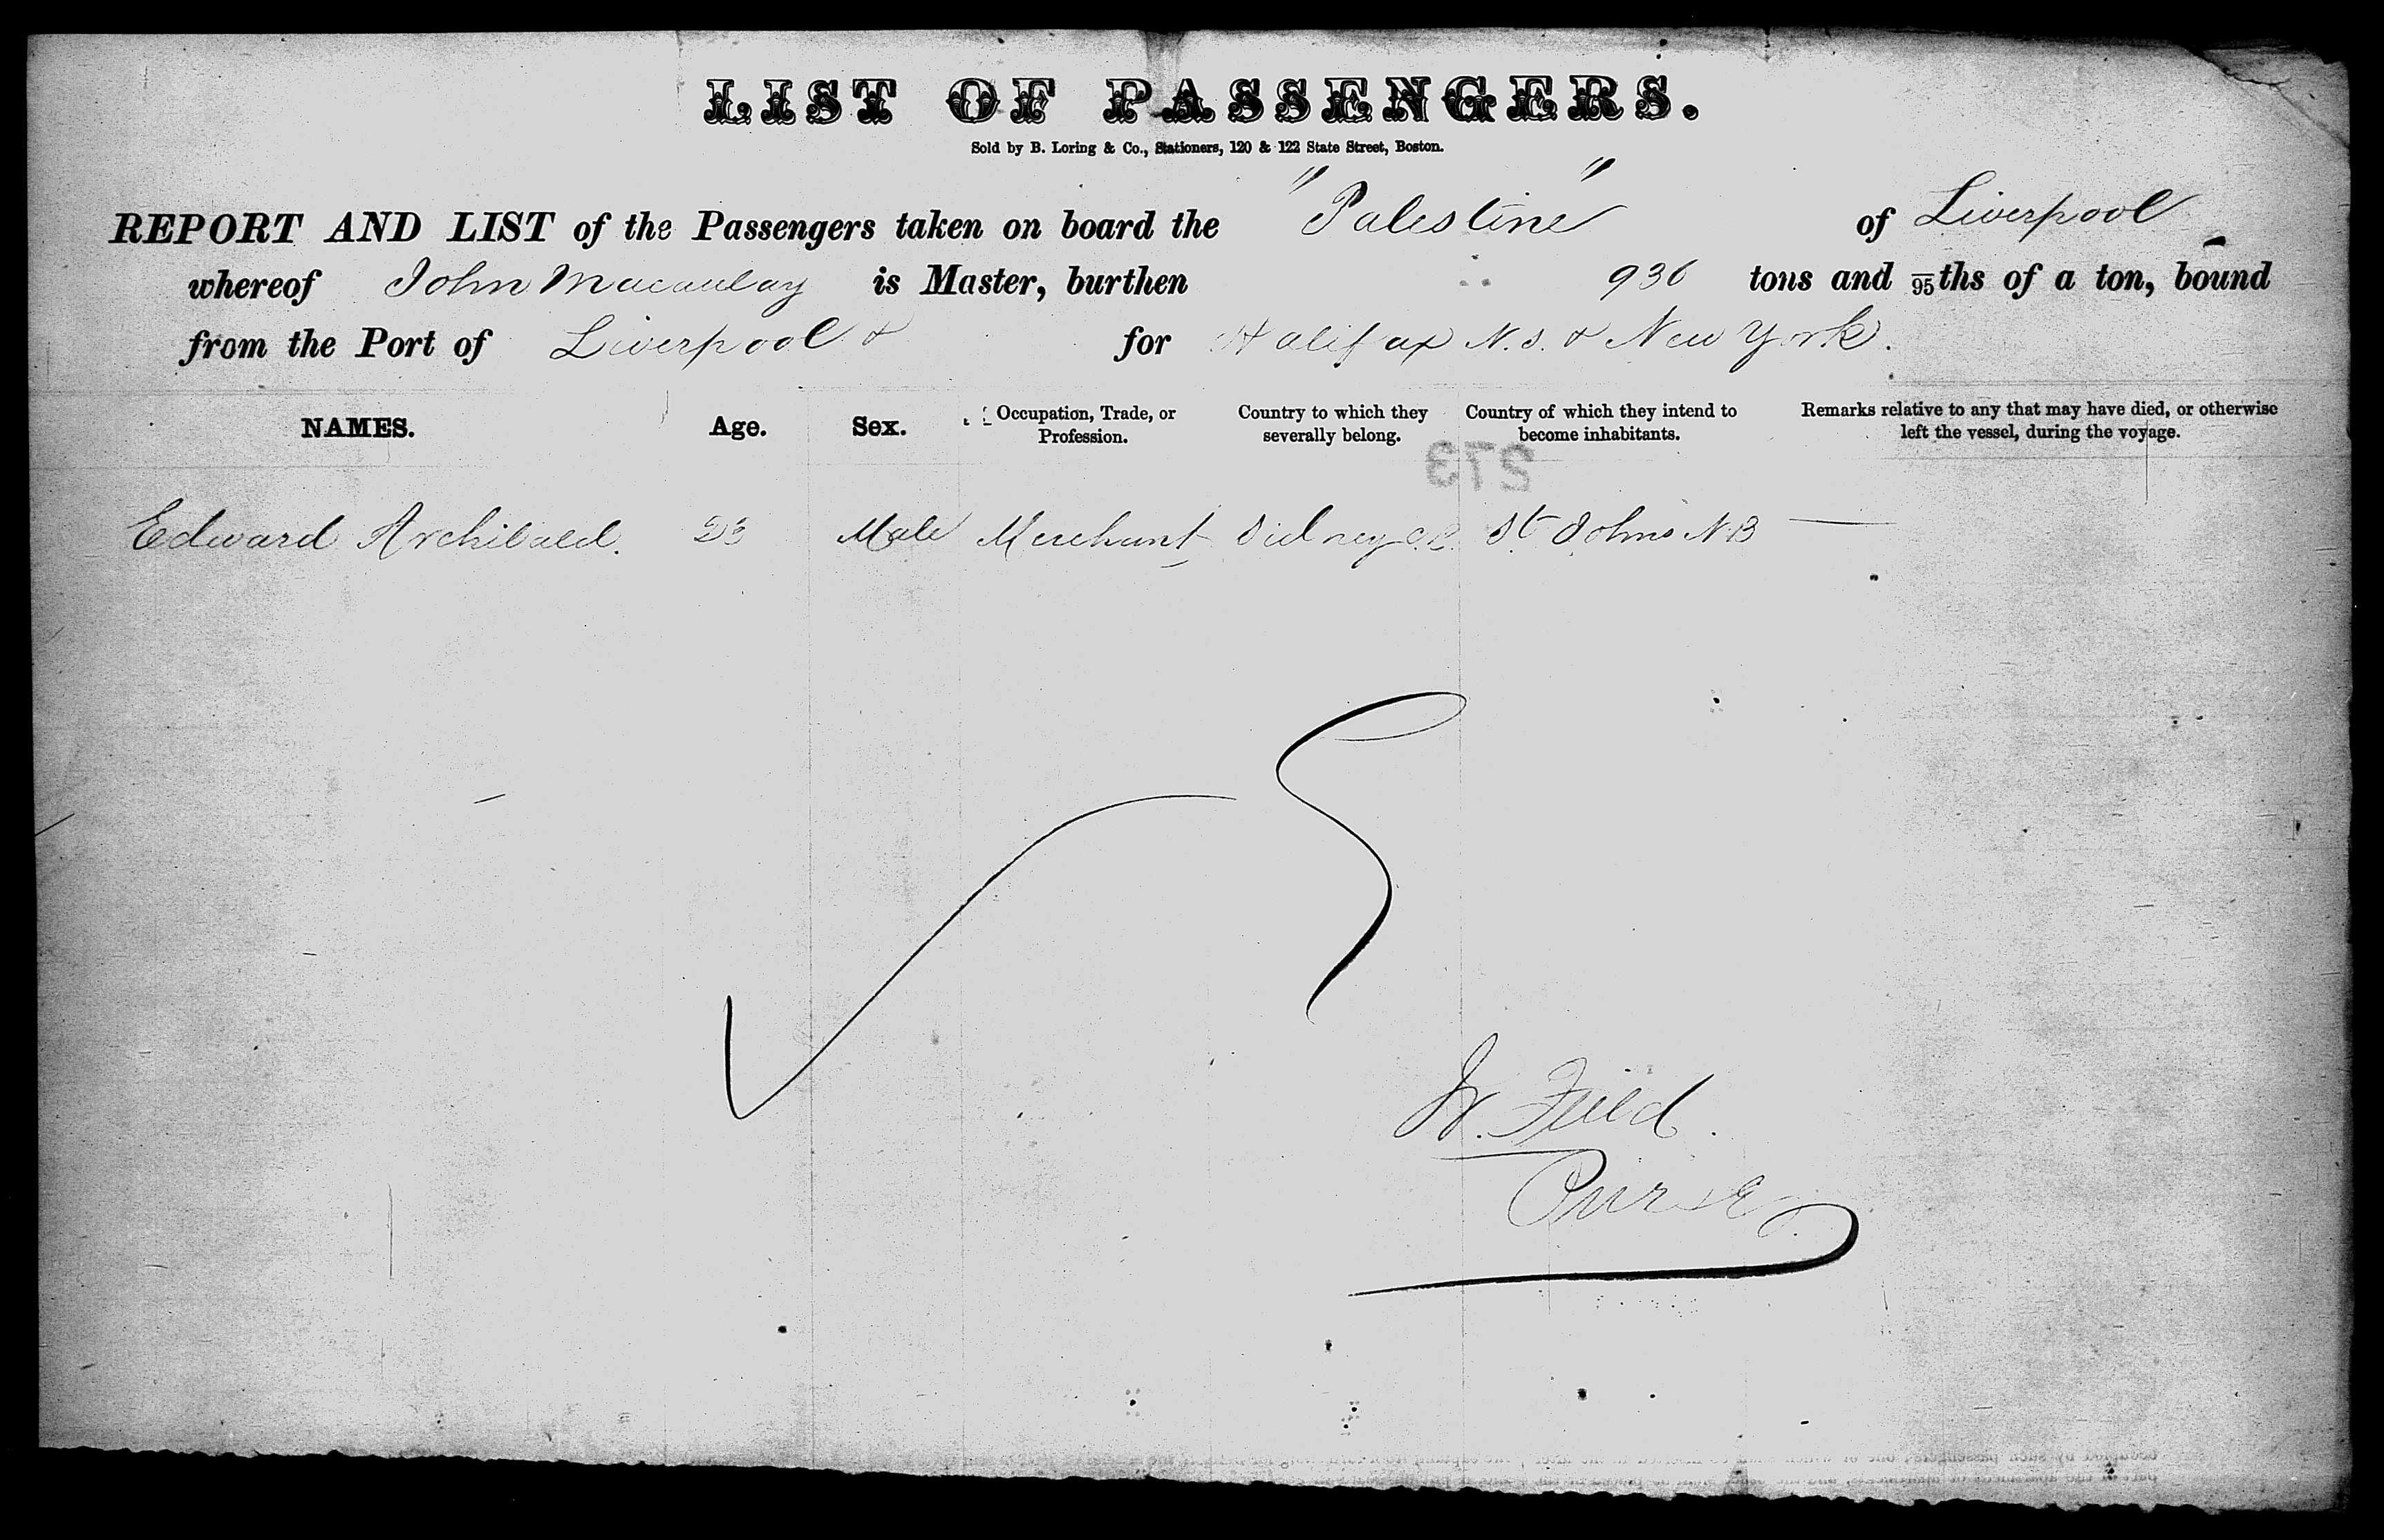 LIST OF PASSENGERS.
Sold by B. Loring & Co., Stationers, 120 & 122 State Street, Boston.
REPORT AND LIST of the Passengers taken on board the "Palestine" of Liverpool
whereof John Macaulay is Master, burthen 936 tons and /95ths of a ton, bound
from the Port of Liverpool & for Halifax N.S. & New York.
NAMES. Age. Sex. Occupation, Trade, or Profession. Country to which they severally belong. Country of which they intend to become inhabitants. Remarks relative to any that may have died, or otherwise left the vessel, during the voyage.
273
Edward Archibald. 23 Male Merchant Sidney C.B. St Johns N.B —
W. Field.
Purser